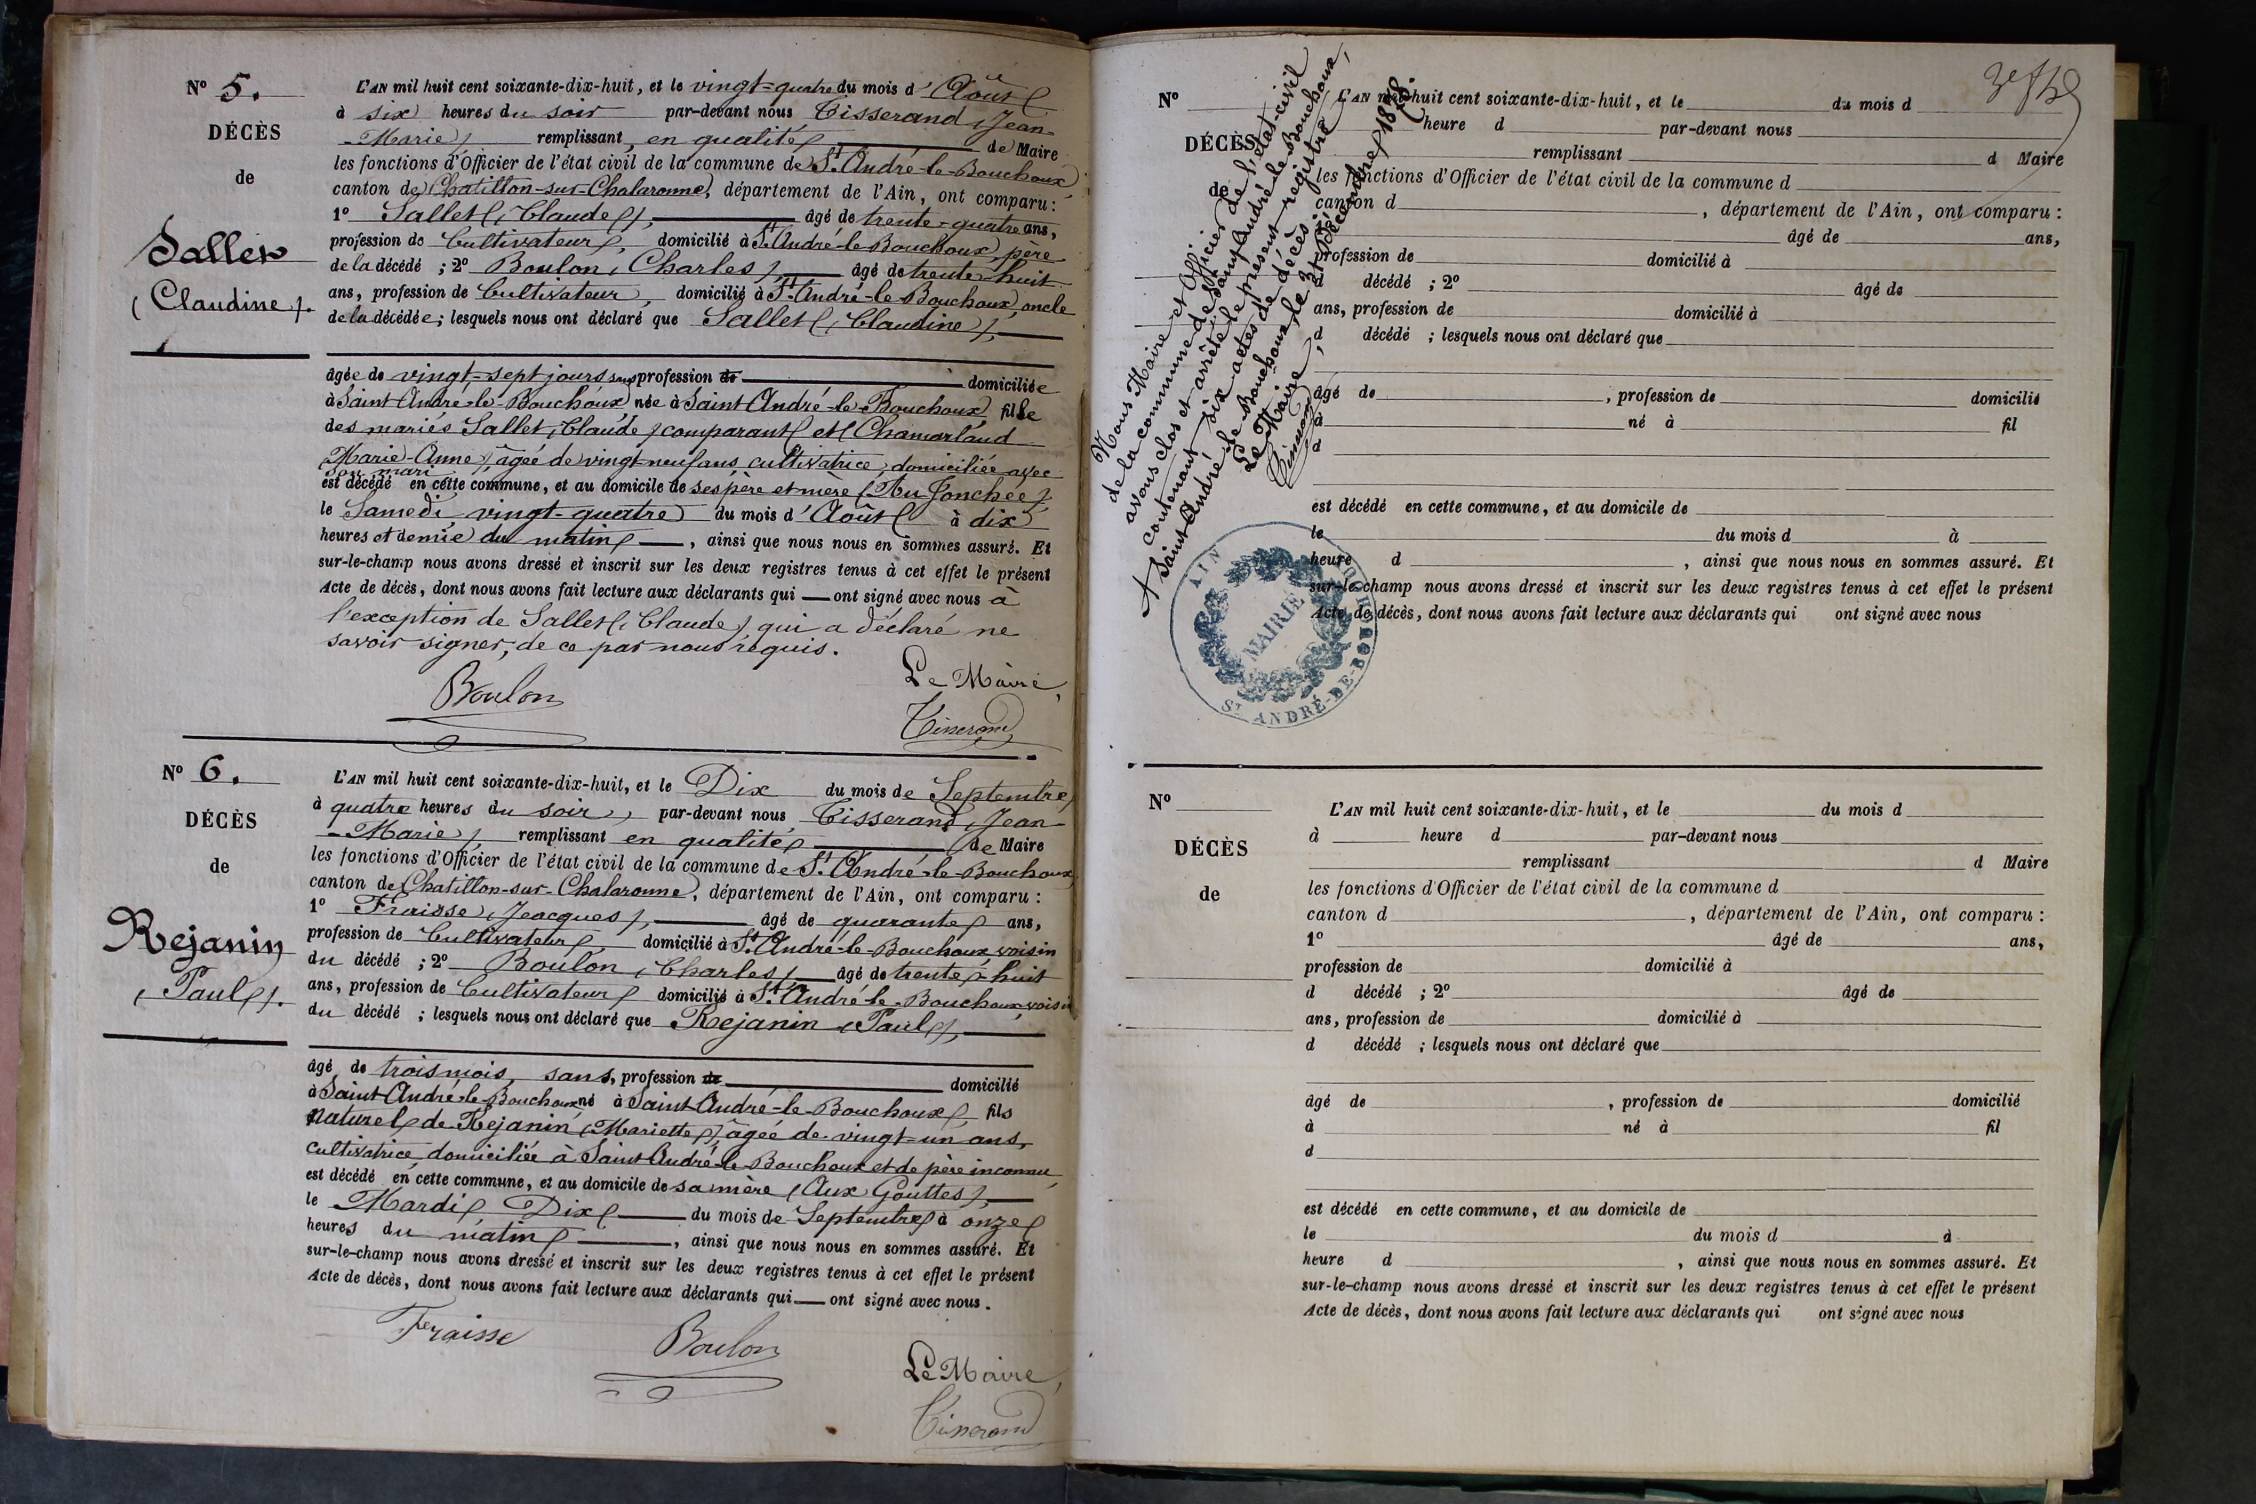 N° 5.
DÉCÈS
de
Sallet
(Claudine).
L'AN mil huit cent soixante-dix-huit, et le vingt-quatre du mois d'Août
à six heures du soir par-devant nous Tisserand, Jean-
-Marie, remplissant, en qualité de Maire
les fonctions d'Officier de l'état civil de la commune de St. André-le-Bouchoux
canton de Chatillon-sur-Chalaronne, département de l'Ain, ont comparu :
1° Sallet (Claude), âgé de trente-quatre ans,
profession de Cultivateur, domicilié à St. André-le-Bouchoux, père
de la décédé ; 2° Boulon (Charles), âgé de trente-huit
ans, profession de Cultivateur, domicilié à St. André-le-Bouchoux, oncle
de la décédée ; lesquels nous ont déclaré que Sallet (Claudine),
âgée de vingt-sept jours sans profession de domiciliée
à Saint André-le-Bouchoux née à Saint André-le-Bouchoux, fille
des mariés Sallet, Claude, comparant et Chamarlaud
Marie-Anne, âgée de vingt-neuf ans, cultivatrice, domiciliée avec
son mari
est décédé en cette commune, et au domicile de ses père et mère (Au Jonchée)
le Samedi vingt-quatre du mois d'Août à dix
heures et demie du matin, ainsi que nous nous en sommes assuré. Et
sur-le-champ nous avons dressé et inscrit sur les deux registres tenus à cet effet le présent
Acte de décès, dont nous avons fait lecture aux déclarants qui ont signé avec nous à
l'exception de Sallet (Claude) qui a déclaré ne
savoir signer, de ce par nous réquis.
Boulon
Le Maire,
Tisserand
N° 6.
DÉCÈS
de
Rejanin
(Paul).
L'AN mil huit cent soixante-dix-huit, et le Dix du mois de Septembre
à quatre heures du soir, par-devant nous Tisserand, Jean-
-Marie, remplissant en qualité de Maire
les fonctions d'Officier de l'état civil de la commune de St. André-le-Bouchoux
canton de Chatillon-sur-Chalaronne, département de l'Ain, ont comparu :
1° Fraisse (Jeacques), âgé de quarante ans,
profession de Cultivateur, domicilié à St. André-le-Bouchoux, voisin
du décédé ; 2° Boulon (Charles), âgé de trente-huit
ans, profession de Cultivateur domicilié à St. André-le-Bouchoux, voisin
du décédé ; lesquels nous ont déclaré que Rejanin (Paul),
âgé de trois mois, sans, profession de domicilié
à Saint André-le-Bouchoux né à Saint André-le-Bouchoux, fils
naturel de Rejanin (Mariette), âgée de vingt-un ans,
cultivatrice domiciliée à Saint André-le-Bouchoux et de père inconnu,
est décédé en cette commune, et au domicile de sa mère (Aux Gouttes),
le Mardi Dix du mois de Septembre à onze
heures du matin, ainsi que nous nous en sommes assuré. Et
sur-le-champ nous avons dressé et inscrit sur les deux registres tenus à cet effet le présent
Acte de décès, dont nous avons fait lecture aux déclarants qui ont signé avec nous.
Fraisse
Boulon
Le Maire,
Tisserand
Nous Maire et Officier de l'état-civil
de la commune de Saint André-le-Bouchoux,
avons clos et arrêté le présent registre
contenant six actes de décès.
A Saint André-le-Bouchoux, le 31 Décembre 1878.
Le Maire,
Tisserand
AIN
MAIRIE
ST ANDRÉ-DE-BOUCHOUX
N°
DÉCÈS
de
L'AN mil huit cent soixante-dix-huit, et le du mois d
heure d par-devant nous
remplissant d Maire
les fonctions d'Officier de l'état civil de la commune d
canton d , département de l'Ain, ont comparu :
âgé de ans,
profession de domicilié à
d décédé ; 2° âgé de
ans, profession de domicilié à
d décédé ; lesquels nous ont déclaré que
âgé de , profession de domicilié
à né à fil
d
est décédé en cette commune, et au domicile de
le du mois d à
heure d , ainsi que nous nous en sommes assuré. Et
sur-le-champ nous avons dressé et inscrit sur les deux registres tenus à cet effet le présent
Acte de décès, dont nous avons fait lecture aux déclarants qui ont signé avec nous
N°
DÉCÈS
de
L'AN mil huit cent soixante-dix-huit, et le du mois d
à heure d par-devant nous
remplissant d Maire
les fonctions d'Officier de l'état civil de la commune d
canton d , département de l'Ain, ont comparu :
1° âgé de ans,
profession de domicilié à
d décédé ; 2° âgé de
ans, profession de domicilié à
d décédé ; lesquels nous ont déclaré que
âgé de , profession de domicilié
à né à fil
d
est décédé en cette commune, et au domicile de
le du mois d à
heure d , ainsi que nous nous en sommes assuré. Et
sur-le-champ nous avons dressé et inscrit sur les deux registres tenus à cet effet le présent
Acte de décès, dont nous avons fait lecture aux déclarants qui ont signé avec nous